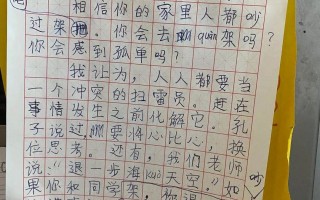 相信你的家里人都吵
过架。你会去 quàn 架吗？
你会感到孤单吗？
我让为，人人都要当
一个冲突的扫雷员。赶在
事情发生之前化解它。孔
子说过，要将心比心，换
位思考。还有，我们老师
说："退一步海 kuò 天空。"如
果你和同学吵架，你退